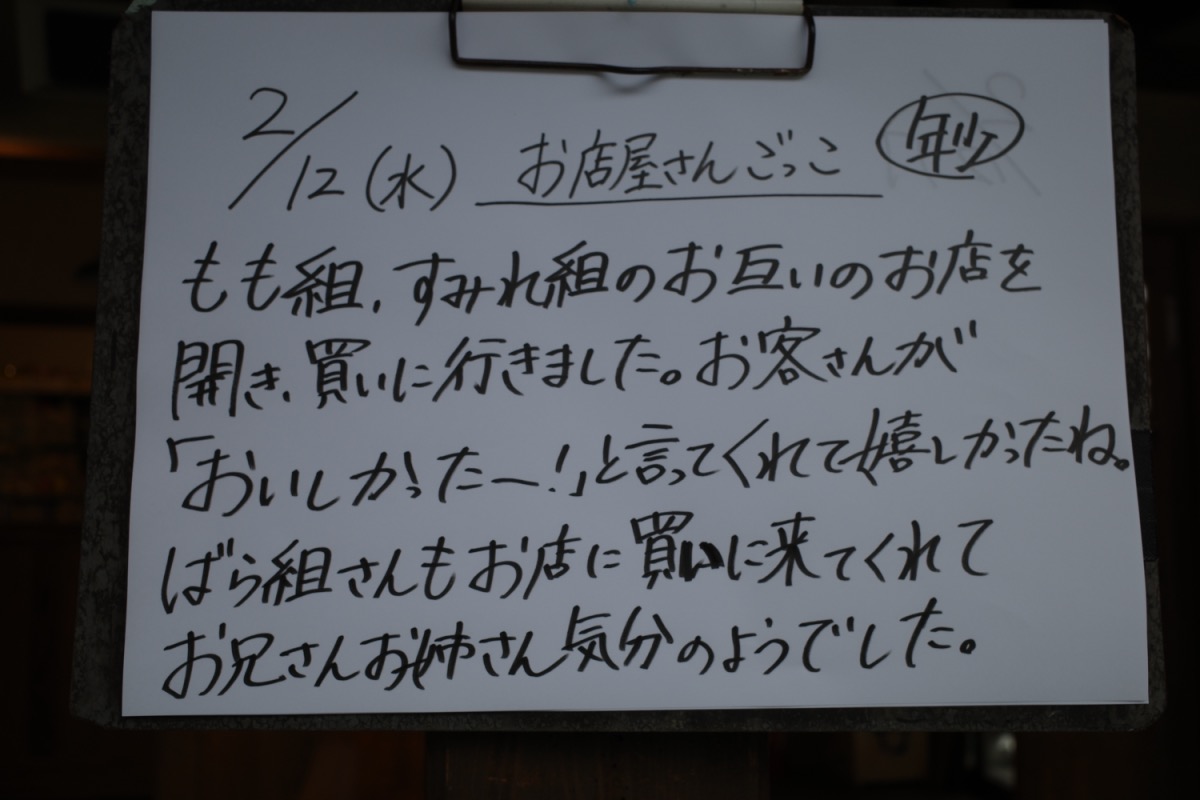 2/12(水) お店屋さんごっこ 年少
もも組、すみれ組のお互いのお店を
開き、買いに行きました。お客さんが
「おいしかったー!」と言ってくれて嬉しかったね。
ばら組さんもお店に買いに来てくれて
お兄さんお姉さん気分のようでした。